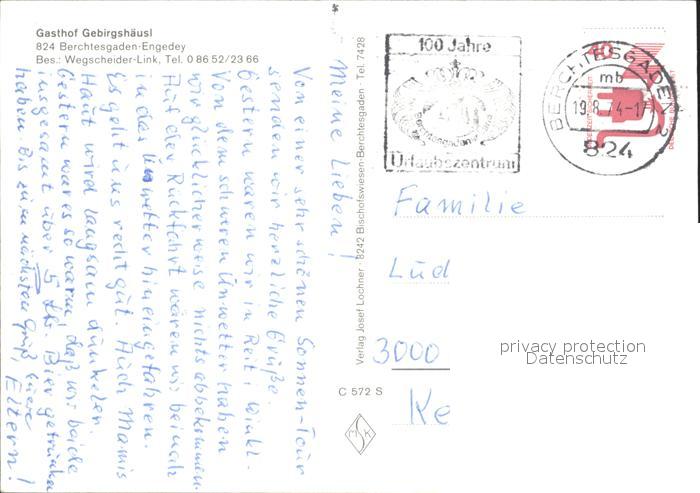 Gasthof Gebirgshäusl
824 Berchtesgaden-Engedey
Bes.: Wegscheider-Link, Tel. 0 86 52/23 66
Meine Lieben!
Von einer sehr schönen Sonnen-Tour
senden wir herzliche Grüße.
Gestern waren wir in Reit i. Winkl.
Von dem schweren Unwetter haben
wir glücklicherweise nichts abbekommen.
Auf der Rückfahrt wären wir beinah
in das Unwetter hineingefahren.
Es geht uns recht gut. Auch Mamis
Haut wird langsam dunkler.
Gestern war es so warm, daß wir beide
insgesamt über 5 Ltr. Bier getrunken
haben. Bis zum nächsten Gruß Eure
Eltern!
Verlag Josef Lochner · 8242 Bischofswiesen-Berchtesgaden · Tel. 7428
C 572 S
MSK
100 Jahre
Urlaubszentrum
BERCHTESGADEN 2
mb
19.8. 4-17
824
40
Familie
Lüd
3000
Ke
privacy protection
Datenschutz